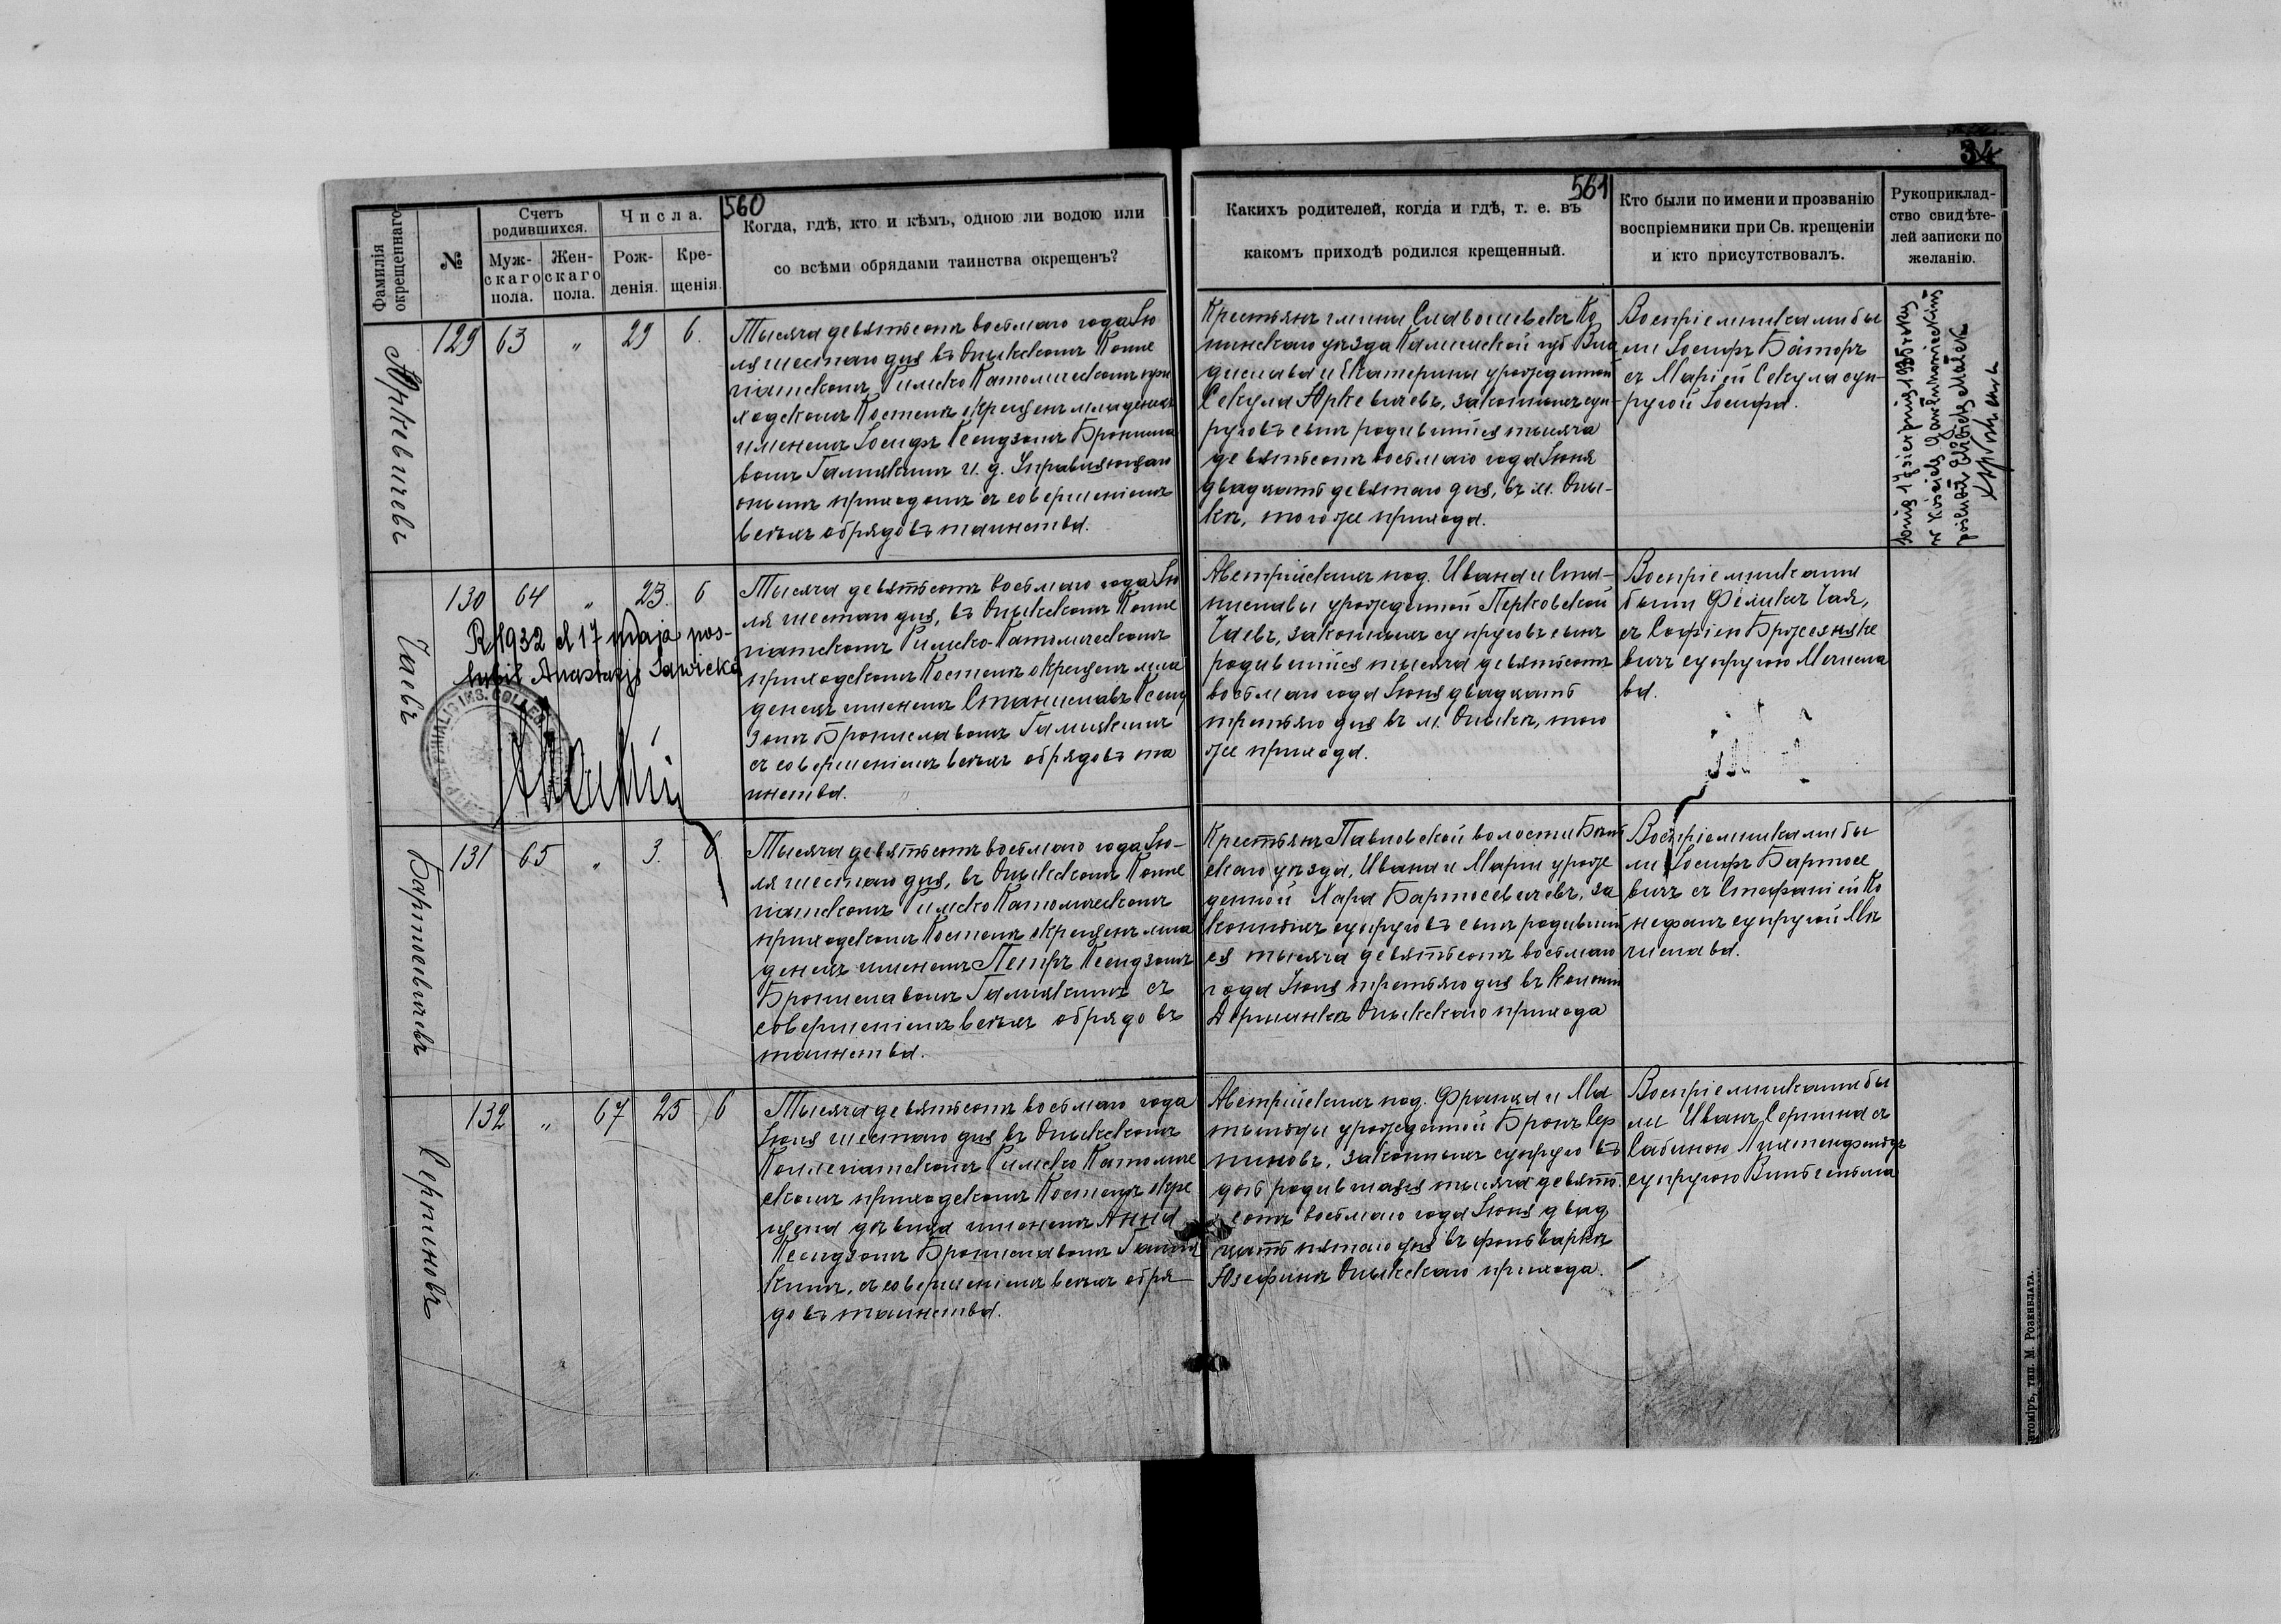 34
560
561
Фамилія
окрещеннаго
№
Счетъ
родившихся.
Муж-
скаго
пола.
Жен-
скаго
пола.
Числа.
Рож-
денія.
Кре-
щенія.
Когда, гдѣ, кто и кѣмъ, одною ли водою или
со всѣми обрядами таинства окрещенъ?
Какихъ родителей, когда и гдѣ, т. е. въ
какомъ приходѣ родился крещенный.
Кто были по имени и прозванію
воспріемники при Св. крещеніи
и кто присутствовалъ.
Рукоприклад-
ство свидѣте-
лей записки по
желанію.
Юркевичевъ
129 63 " 29 6.
Тысяча девятьсотъ восьмаго года Ію
ля шестаго дня въ Олыкскомъ Колле
гіатскомъ Римско Католическомъ при
ходскомъ Костелѣ окрещенъ младенецъ
именемъ Іосифъ Ксендзомъ Брониcла
вомъ Галицкимъ и. д. Управляющаго
онымъ приходомъ съ совершеніемъ
всѣхъ обрядовъ таинства.
Крестьянъ гмины Славошевскъ Ко
нинскаго уѣзда Калишской губ Вла
дислава и Екатерины урожденной
Секула Юркевичевъ, законныхъ суп-
руговъ сынъ родившійся тысяча
девятьсотъ восьмаго года Іюня
двадцать девятаго дня, въ м. Олы-
кѣ, того же прихода.
Воспріемниками бы
ли Іосифъ Баторъ
съ Маріей Секула суп-
ругой Іосифа.
17 sierpnia 1935 roku
w Kościele
poślubił Elżbietę
Чаевъ
130 64 " 23. 6
R. 1932 d 17 maja poś-
lubił Anastazję Sawicką
Тысяча девятьсотъ восьмаго года Ію
ля шестаго дня, въ Олыкскомъ Колле
гіатскомъ Римско-Католическомъ
приходскомъ Костелѣ окрещенъ мла
денецъ именемъ Станиславъ Ксенд
зомъ Брониславомъ Галицкимъ
съ совершеніемъ всѣхъ обрядовъ та
инства.
Австрійскихъ под. Ивана и Ста-
ниславы урожденной Перковской
Чаевъ, законныхъ супруговъ сынъ
родившійся тысяча девятьсотъ
восьмаго года Іюня двадцать
третьяго дня въ м. Олыкѣ, того
же прихода.
Воспріемниками
были Феликсъ Чая,
съ Софіею Брожезняке
вичъ супругою Мечисла
ва.
Бартосевичевъ
131 65 " 3. 6
Тысяча девятьсотъ восьмаго года Ію-
ля шестаго дня, въ Олыкскомъ Колле
гіатскомъ Римско Католическомъ
приходскомъ Костелѣ окрещенъ мла
денецъ именемъ Петръ Ксендзомъ
Брониславомъ Галицкимъ съ
совершеніемъ всѣхъ обрядовъ
таинства.
Крестьянъ Павловской волости
скаго уѣзда, Ивана и Маріи урож
денной Хара Бартосевичевъ, за
конныхъ супруговъ сынъ родившій
ся тысяча девятьсотъ восьмаго
года Іюня третьяго дня въ колоніи
Дерманкѣ Олыкскаго прихода
Воспріемниками бы
ли Іосифъ Бартосе
вичъ съ Стефаніей Ко
нефалъ супругой Мѣ
числава.
Серпиновъ
132 " 67 25 6
Тысяча девятьсотъ восьмаго года
Іюля шестаго дня въ Олыкскомъ
Коллегіатскомъ Римско Католиче
скомъ приходскомъ Костелѣ окре
щена дѣвица именемъ Анна
Ксендзомъ Брониславомъ Галиц
кимъ, съ совершеніемъ всѣхъ обря
довъ таинства.
Австрійскихъ под. Франца и Ма
тильды урожденной Бронъ Сер
пиновъ, законныхъ супруговъ
дочь родившаяся тысяча девять
сотъ восьмаго года Іюня двад
цать пятаго дня въ фольваркѣ
Юзефинѣ Олыкскаго прихода.
Воспріемниками бы
ли Иванъ Серпина съ
Сабиною
супругою Вильгельма
тип. М. Розенблата.